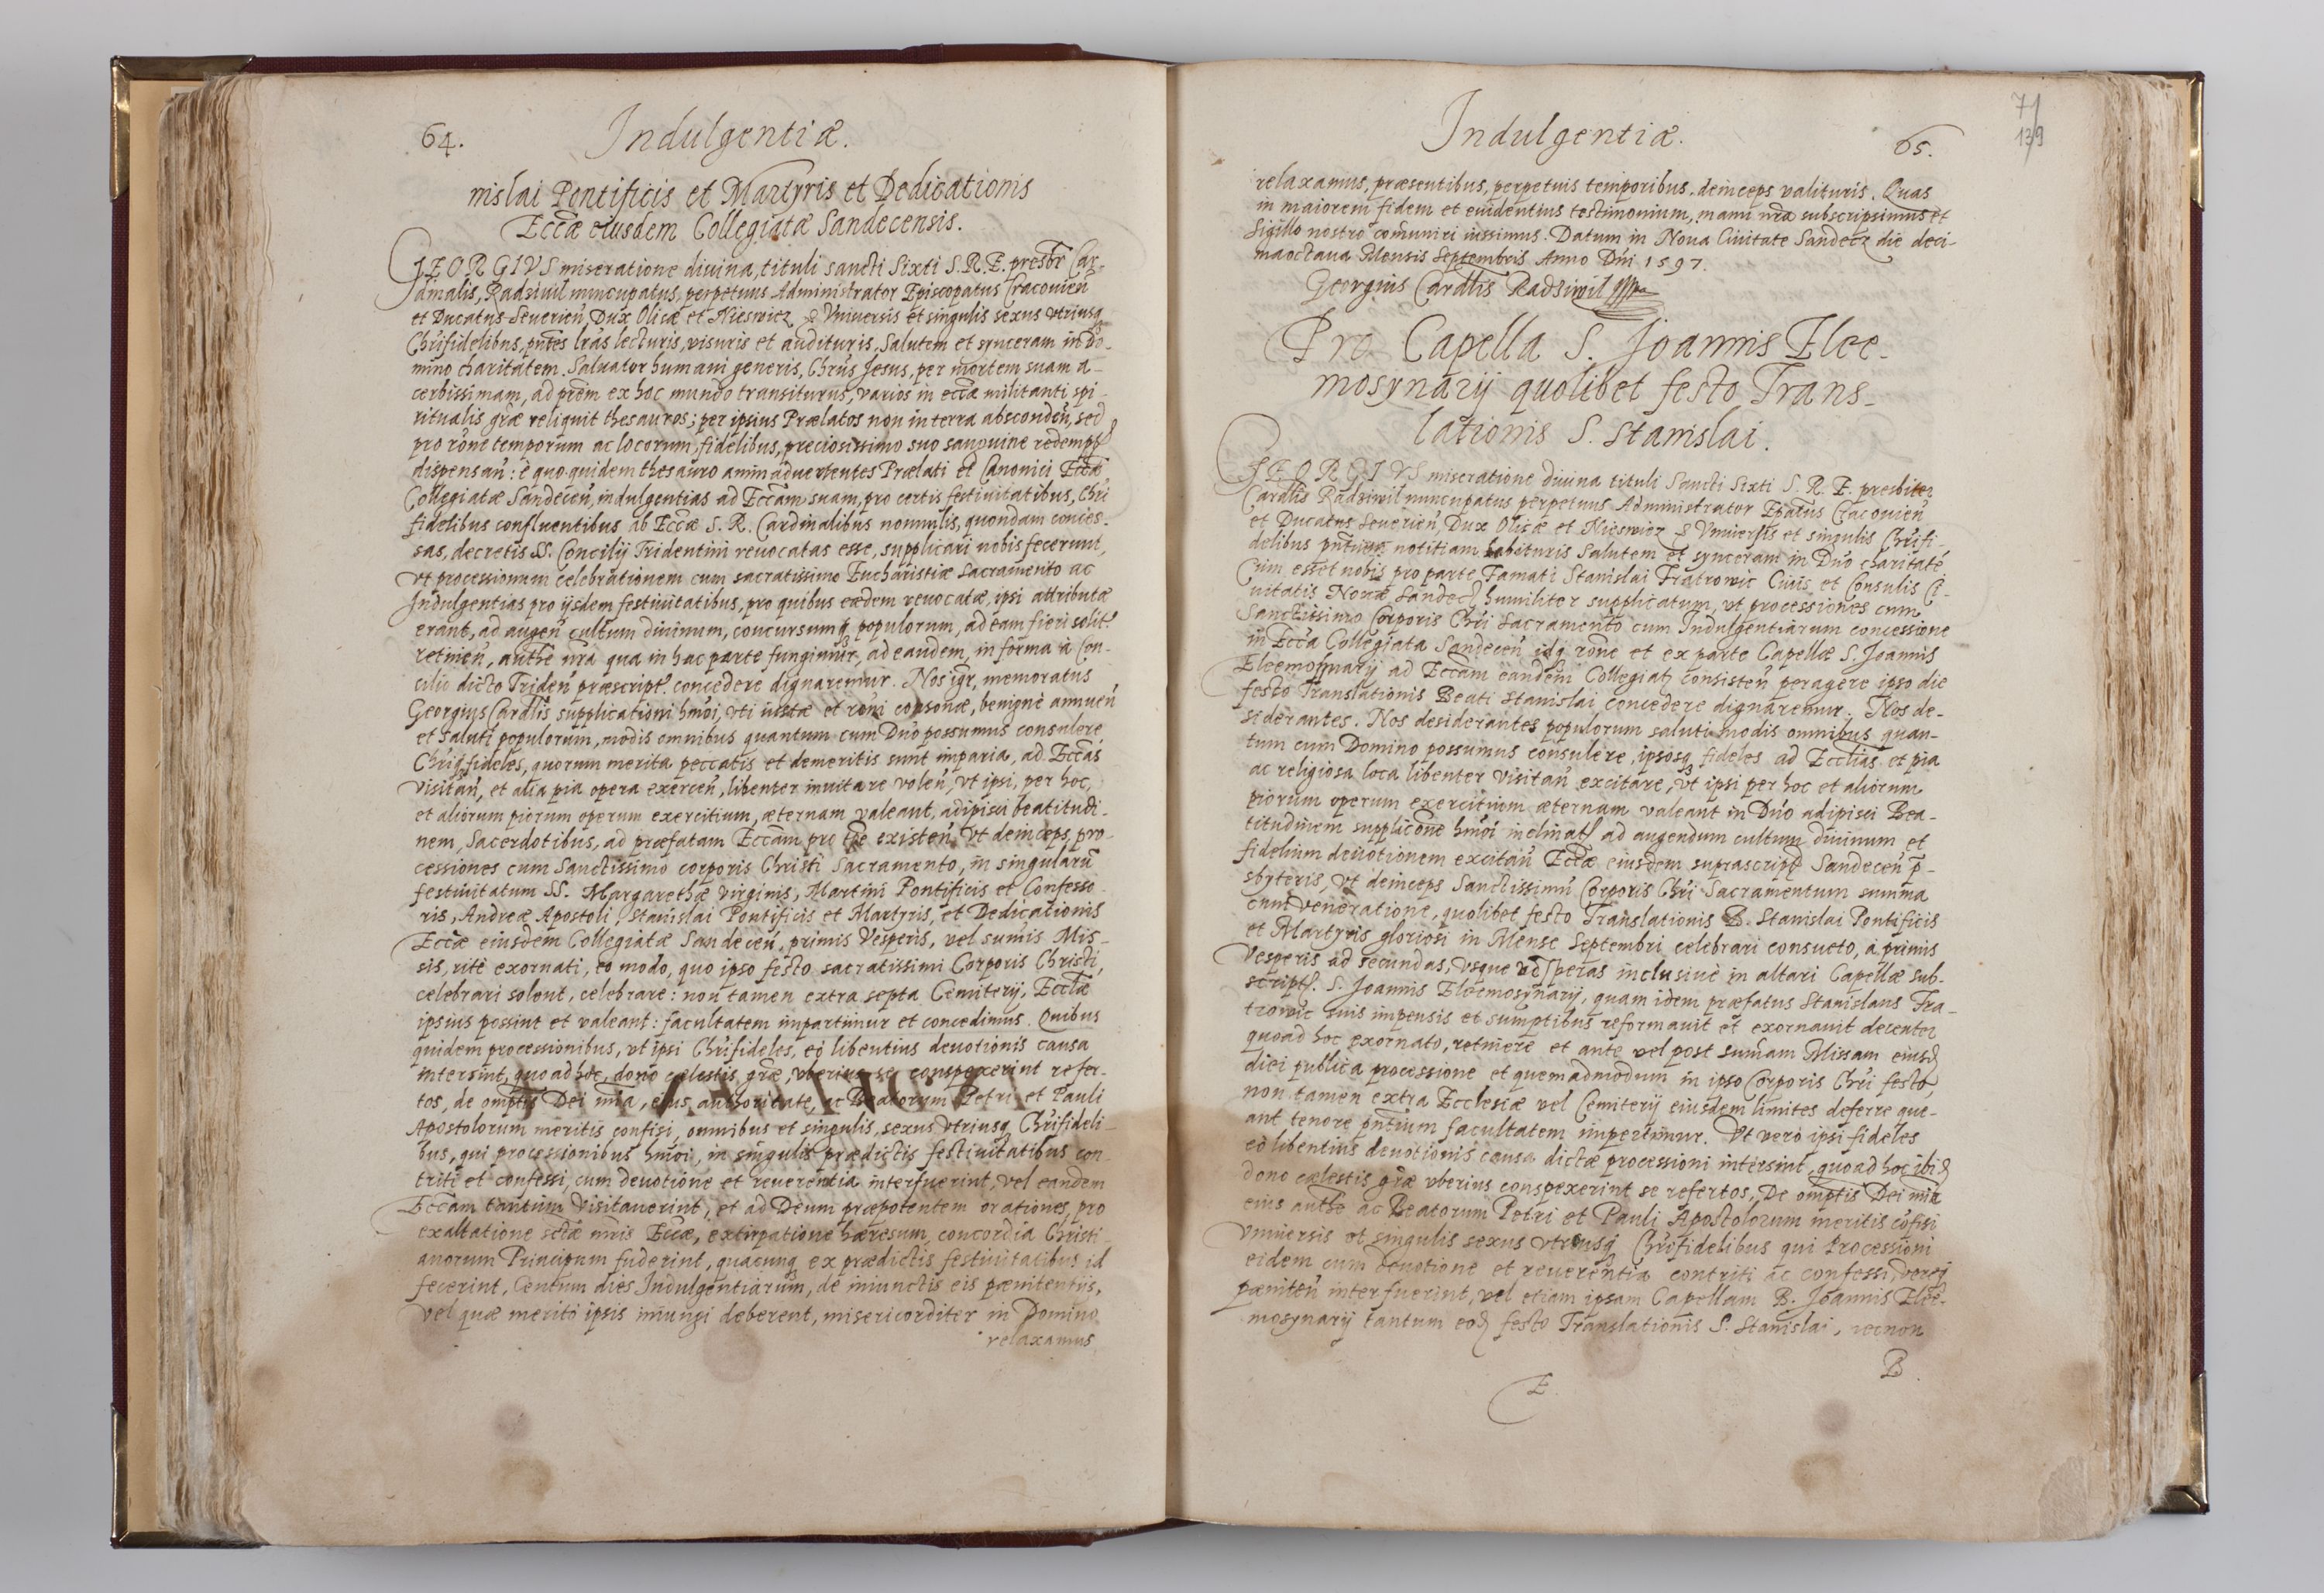 64. Indulgentiæ.
nislai Pontificis et Martyris et Dedicationis
Eccæ eiusdem Collegiatæ Sandecensis.
GEORGIVS miseratione diuina, tituli sancti Sixti S. R. E. presbr Car-
dinalis, Radziuil nuncupatus, perpetuus Administrator Episcopatus Cracouień
et Ducatus Seuerień, Dux Olicæ et Nieswiez Vniuersis et singulis sexus vtriusq
Chrifidelibus, pntes lras lecturis, visuris et audituris, Salutem et synceram in Do-
mino charitatem. Saluator humani generis, Chrus Jesus, per mortem suam a-
cerbissimam, ad prem ex hoc mundo transiturus, varios in ecca militanti spi-
ritualis græ reliquit thesauros; per ipsius Prælatos non in terra absconden, sed
pro rone temporum ac locorum, fidelibus, preciosissimo suo sanguine redempt
dispensan: è quo quidem thesauro animaduertentes Prælati et Canonici Eccæ
Collegiatæ Sandeceń, indulgentias ad Eccam suam, pro certis festiuitatibus, Chri
fidelibus confluentibus ab Eccæ S. R. Cardinalibus nonnulis, quondam conces-
sas, decretis SS. Concilij Tridentini reuocatas esse, supplicari nobis fecerunt,
vt processionum celebrationem cum sacratissimo Eucharistiæ Sacramento ac
Indulgentias pro ijsdem festiuitatibus, pro quibus eædem reuocatæ, ipsi attributæ
erant, ad augeń cultum diuinum, concursumq populorum, ad eam fieri solit
retineń, authe nra qua in hac parte fungimur, ad eandem, in forma à Con-
cilio dicto Trideń præscript. concedere dignaremur. Nos igr, memoratus
Georgius Cardlis supplicationi hmoi, vti iustæ et roni consonæ, benignè annueń
et saluti populorum, modis omnibus quantum cum Dno possumus consulere
Chriq fideles, quorum merita peccatis et demeritis sunt imparia, ad Eccas
visitań, et alia pia opera exerceń, libenter inuitare voleń, vt ipsi, per hoc,
et aliorum piorum operum exercitium, æternam valeant, adipisci beatitudi-
nem, Sacerdotibus, ad præfatam Eccam pro tpe existeń. Vt deinceps, pro-
cessiones cum Sanctissimo corporis Christi Sacramento, in singularu
festiuitatum SS. Margarethæ virginis, Martini Pontificis et Confesso-
ris, Andreæ Apostoli, Stanislai Pontificis et Martyris, et Dedicationis
Eccæ eiusdem Collegiatæ Sandeceń, primis Vesperis, vel sumis Mis-
sis, ritè exornati, eo modo, quo ipso festo sacratissimi Corporis Christi,
celebrari solent, celebrare: non tamen extra septa Cemiterij, Ecclæ
ipsius possint et valeant: facultatem impartimur et concedimus. Quibus
quidem processionibus, vt ipsi Chrifideles, eò libentius deuotionis causa
intersint, quo ad hoc, dono cælestis græ, vberius se conspexerint refer-
tos, de omptis Dei mia, eius authoritate, ac Beatorum Petri et Pauli
Apostolorum meritis confisi, omnibus et singulis, sexus vtriusq Chrifideli-
bus, qui processionibus hmoi, in singulis prædictis festiuitatibus con-
triti et confessi, cum deuotione et reuerentia interfuerint, vel eandem
Eccam tantum Visitauerint, et ad Deum præpotentem orationes, pro
exaltatione sctæ mris Eccæ, extirpatione hæresum, concordia Christi-
anorum Principum fuderint, quacunq ex prædictis festiuitatibus id
fecerint, Centum dies Indulgentiarum, de iniunctis eis pænitentijs,
vel quæ meritò ipsis iniungi deberent, misericorditer in Domino
relaxamus
Indulgentiæ. 65.
71
139
relaxamus, præsentibus, perpetuis temporibus, deinceps valituris. Quas
in maiorem fidem et euidentius testimonium, manu nra subscripsimus et
Sigillo nostro comuniri iussimus. Datum in Noua Ciuitate Sandecz die deci-
maoctaua Mensis Septembris Anno Dni 1597.
Georgius Cardlis Radziwil
Pro Capella S. Joannis Elee-
mosynarij quolibet festo Trans-
lationis S. Stanislai.
GEORGIVS miseratione diuina tituli Sancti Sixti S. R. E. presbiter
Cardlis Radziwil nuncupatus perpetuus Administrator Epatus Cracouień
et Ducatus Seuerień, Dux Olicæ et Nieswiez Vniuersis et singulis Chrifi-
delibus pntium notitiam habituris Salutem et synceram in Dno charitate
Cum esset nobis pro parte Famati Stanislai Fratrowic Ciuis et Consulis Ci-
uitatis Nouæ Sandecz humiliter supplicatum, vt processiones cum
Sanctissimo Corporis Chri Sacramento cum Indulgentiarum concessione
in Ecca Collegiata Sandeceń idq rone et ex parte Capellæ S. Joannis
Eleemosynarij ad Eccam eandem Collegiat consisteń peragere ipso die
festo Translationis Beati Stanislai concedere dignaremur. Nos de-
siderantes. Nos desiderantes populorum saluti modis omnibus quan-
tum cum Domino possumus consulere, ipsosq fideles ad Ecclias et pia
ac religiosa loca libenter visitań excitare, vt ipsi per hoc et aliorum
piorum operum exercitium æternam valeant in Dno adipisci Bea-
titudinem supplicone hmoi inclinat ad augendum cultum diuinum et
fidelium deuotionem excitań Eccæ eiusdem suprascript Sandeceń p-
sbyteris, vt deinceps Sanctissimu Corporis Chri Sacramentum summa
cum veneratione, quolibet festo Translationis B. Stanislai Pontificis
et Martyris gloriosi in Mense Septembri celebrari consueto, à primis
Vesperis ad secundas, vsque vesperas inclusiuè in altari Capellæ sub-
script. S. Joannis Eleemosynarij, quam idem præfatus Stanislaus Fra-
trowic suis impensis et sumptibus reformauit et exornauit decenter
quoad hoc exornato, retinere et ante vel post sumam Missam eiusd
diei publica processione et quemadmodum in ipso Corporis Chri festo,
non tamen extra Ecclesiæ vel Cemiterij eiusdem limites deferre que-
ant tenore pntium facultatem impertimur. Vt verò ipsi fideles
eò libentius deuotionis causa dictæ processioni intersint, quoad hoc ibid
dono cælestis græ vberius conspexerint se refertos, De omptis Dei mia
eius authe ac Beatorum Petri et Pauli Apostolorum meritis cofisi
Vniuersis et singulis sexus vtriusq Chrifidelibus qui Processioni
eidem cum deuotione et reuerentia contriti ac confessi, vereq
pæniteń interfuerint, vel etiam ipsam Capellam B. Joannis Elee-
mosynarij tantum eod festo Translationis S. Stanislai, necnon
E. B